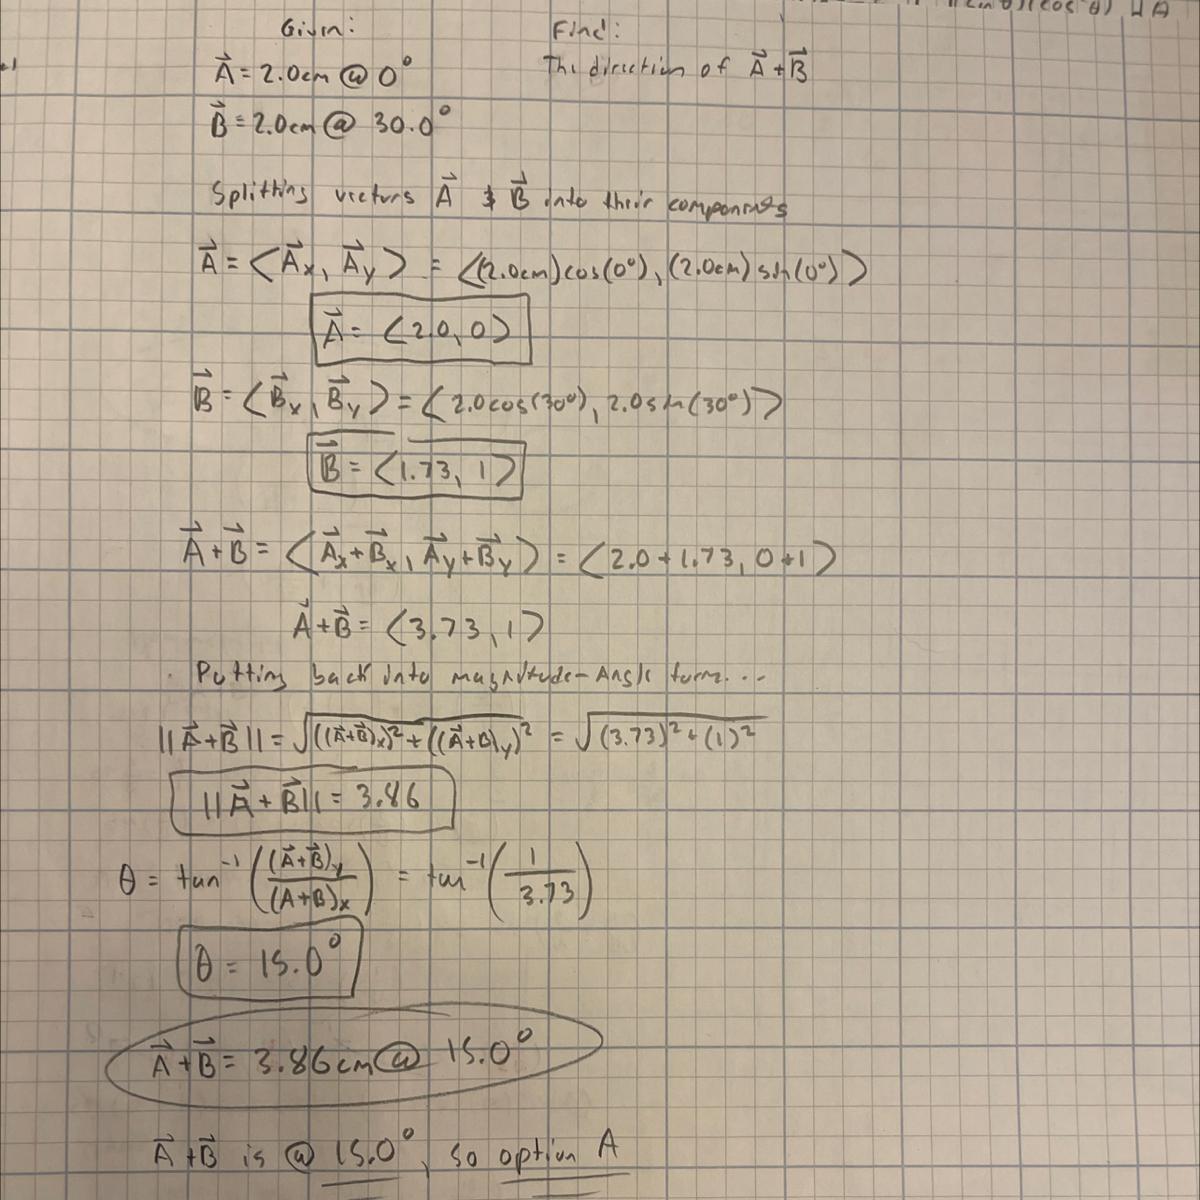 Given:
Find:
A⃗ = 2.0cm @ 0°
The direction of A⃗ + B⃗
B⃗ = 2.0cm @ 30.0°
Splitting vectors A⃗ & B⃗ into their components
A⃗ = ⟨A⃗x, A⃗y⟩ = ⟨(2.0cm)cos(0°), (2.0cm)sin(0°)⟩
A⃗ = ⟨2.0, 0⟩
B⃗ = ⟨B⃗x, B⃗y⟩ = ⟨2.0cos(30°), 2.0sin(30°)⟩
B⃗ = ⟨1.73, 1⟩
A⃗ + B⃗ = ⟨A⃗x + B⃗x, A⃗y + B⃗y⟩ = ⟨2.0 + 1.73, 0 + 1⟩
A⃗ + B⃗ = ⟨3.73, 1⟩
Putting back into magnitude-Angle form...
||A⃗ + B⃗|| = √((A⃗+B⃗)x)² + ((A⃗+B)y)² = √(3.73)² + (1)²
||A⃗ + B⃗|| = 3.86
θ = tan⁻¹((A⃗+B⃗)y/(A+B)x) = tan⁻¹(1/3.73)
θ = 15.0°
A⃗ + B⃗ = 3.86cm @ 15.0°
A⃗ + B⃗ is @ 15.0°, so option A